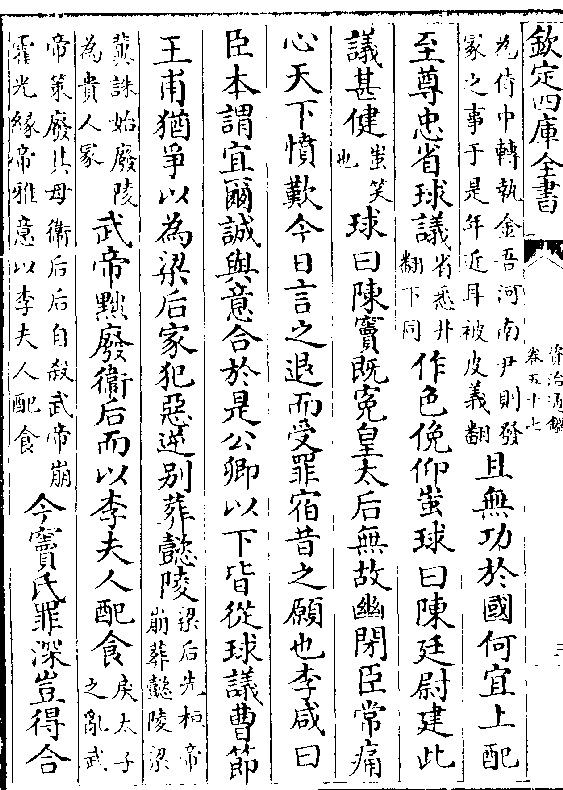 欽定四庫全書
資治通鑑
卷五十七
為侍中轉執金吾河南尹則發
冢之事于是年近耳被皮義翻
且無功於國何宜上配
至尊忠省球議
省悉井
翻下同
作色俛仰蚩球曰陳廷尉建此
議甚健
蚩笑
也
球曰陳竇既寃皇太后無故幽閉臣常痛
心天下憤歎今日言之退而受罪宿昔之願也李咸曰
臣本謂宜爾誠與意合於是公卿以下皆從球議曹節
王甫猶爭以為梁后家犯惡逆别葬懿陵
梁后先桓帝
崩葬懿陵梁
冀誅始廢陵
為貴人冢
武帝黜廢衞后而以李夫人配食
戾太子
之亂武
帝策廢其母衞后后自殺武帝崩
霍光緣帝雅意以李夫人配食
今竇氏罪深豈得合